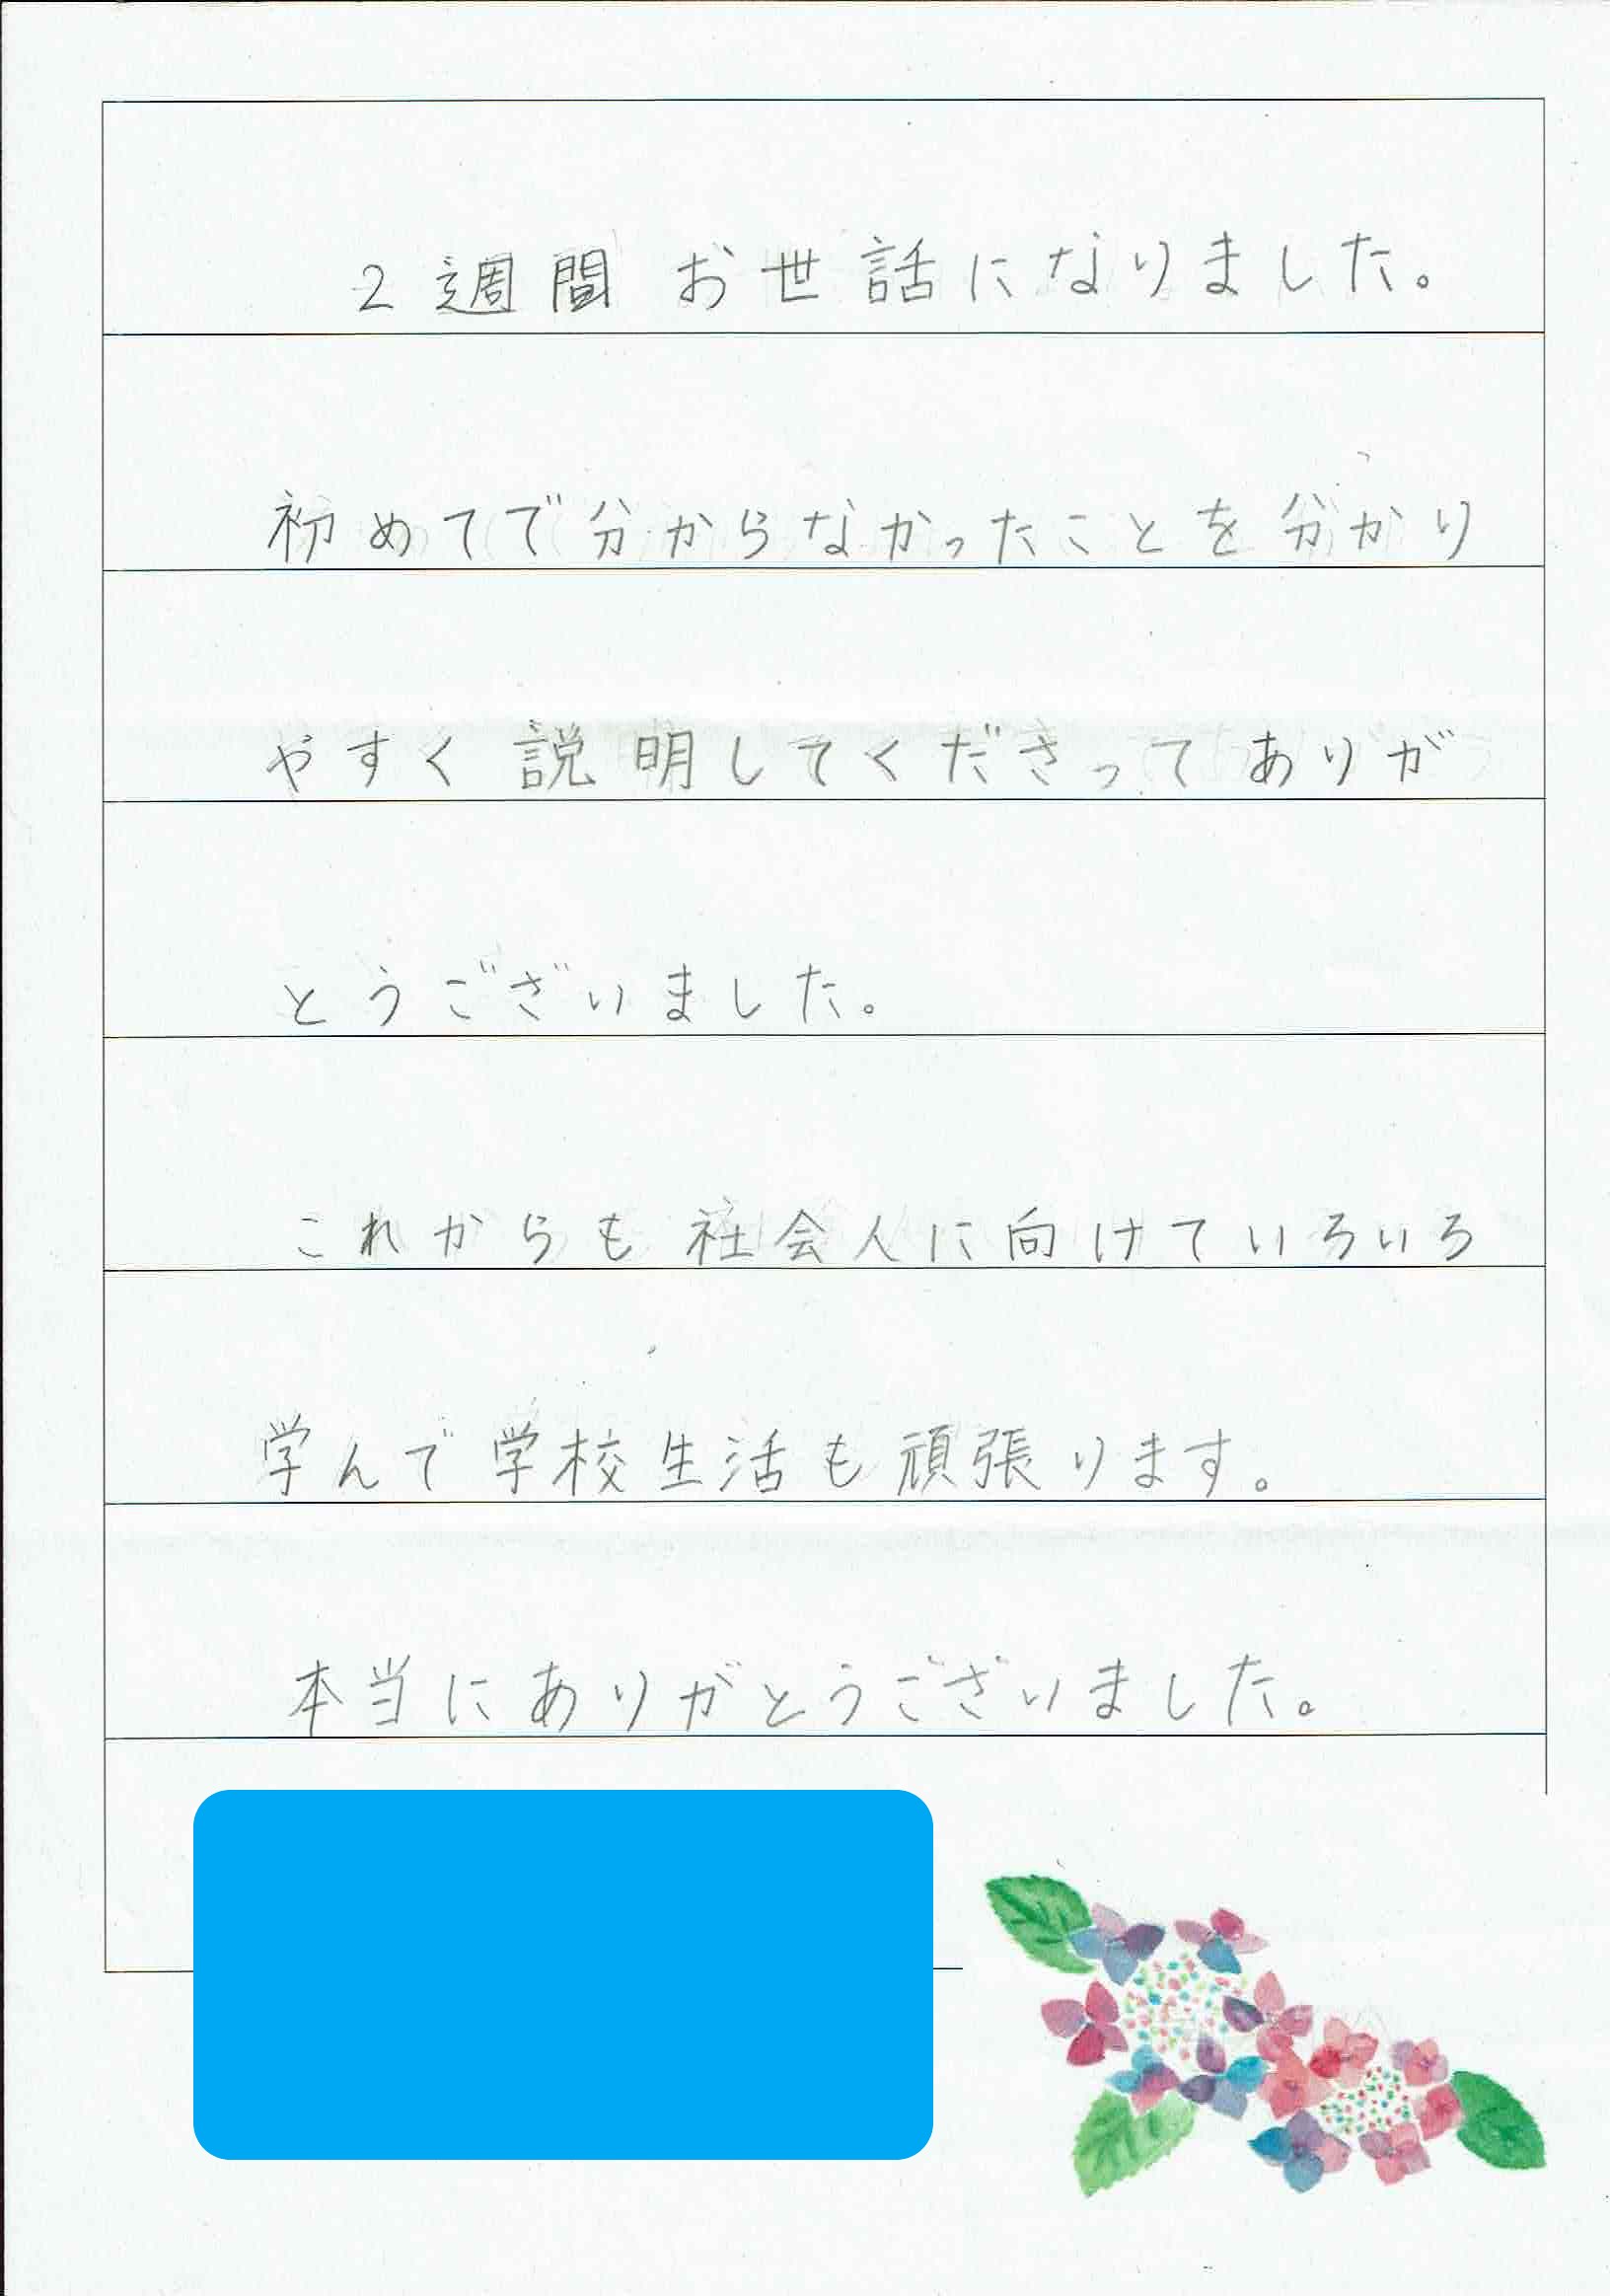 2週間お世話になりました。
初めてで分からなかったことを分かり
やすく説明してくださってありが
とうございました。
これからも社会人に向けていろいろ
学んで学校生活も頑張ります。
本当にありがとうございました。